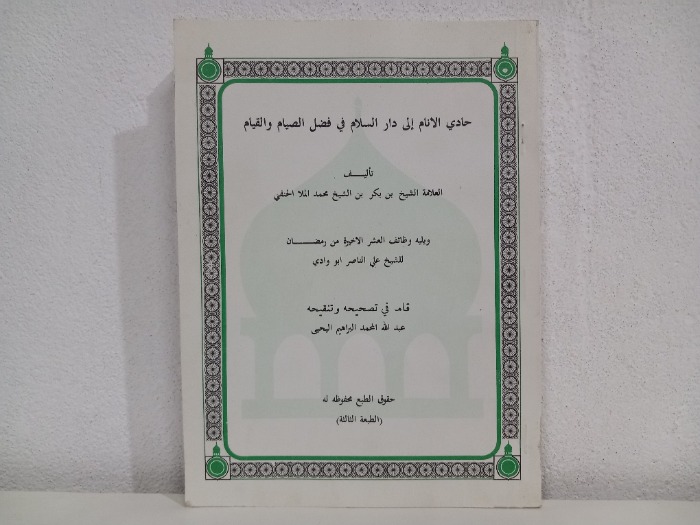 حادي الانام إلى دار السلام في فضل الصيام والقيام
تأليــــف
العلامة الشيخ بن بكر بن الشيخ محمد الملا الحنفي
ويليه وظائف العشر الاخيرة من رمضـــــــان
للشيخ علي الناصر ابو وادي
قام في تصحيحه وتنقيحه
عبد الله المحمد البراهيم اليحيى
حقوق الطبع محفوظه له
(الطبعة الثالثة)